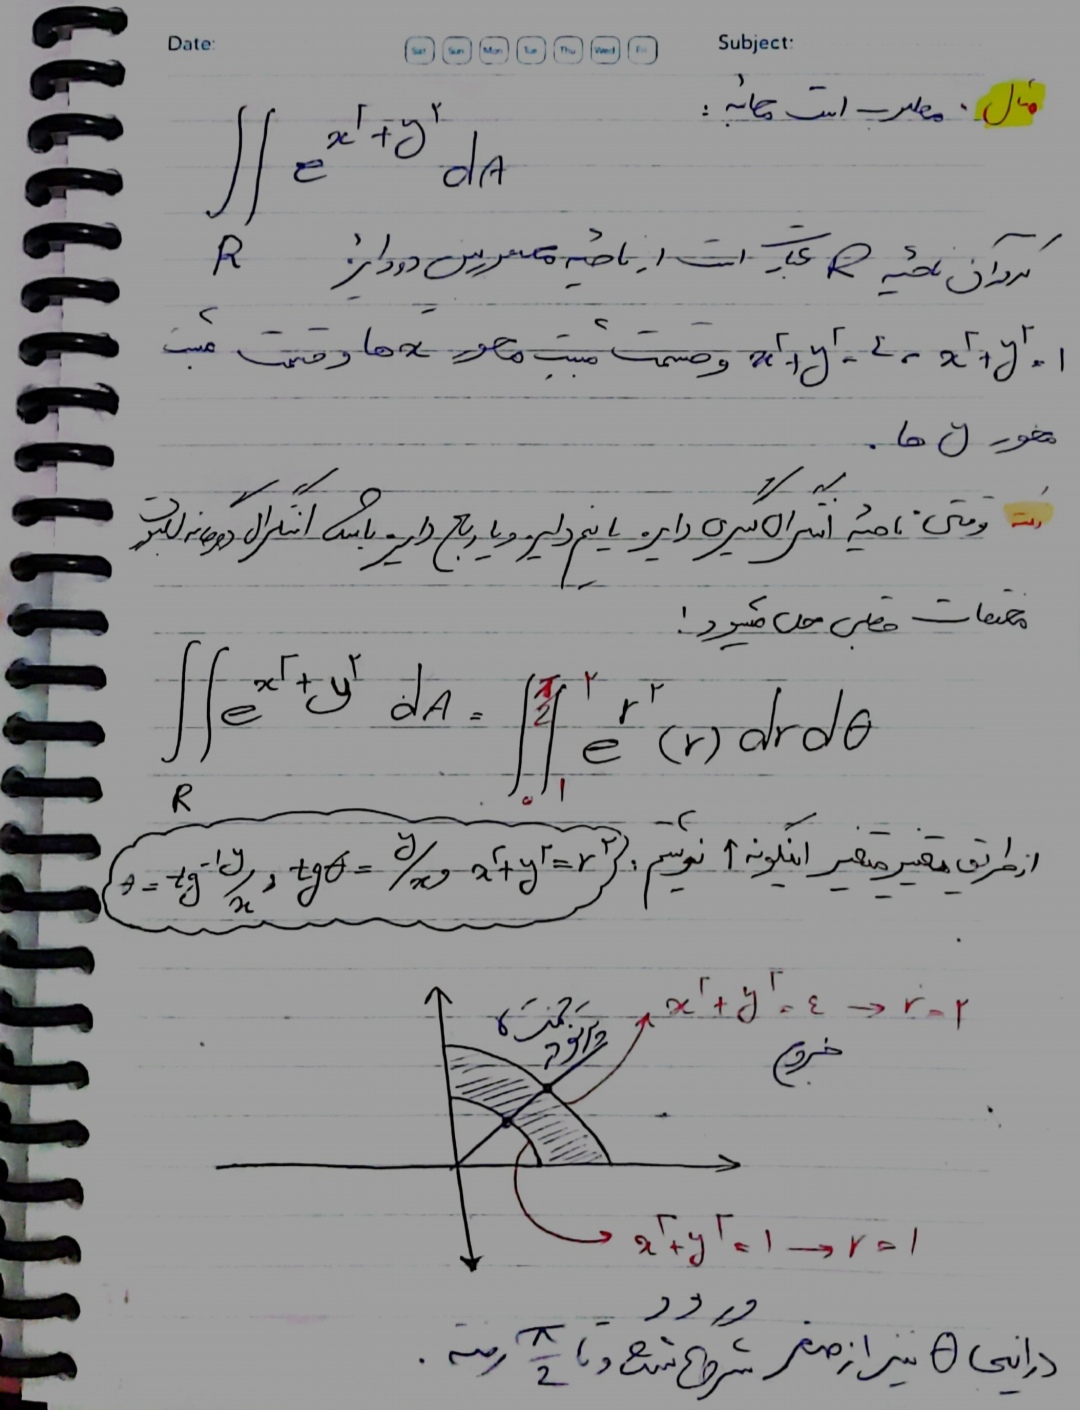 Date: Sat Sun Mon Tue Thu Wed Fri Subject:
مثال. مطلوب است محاسبه:
∬_R e^(x²+y²) dA
که در آن ناحیه R عبارت است از ناحیه محصور بین دو دایره
x²+y²=۱ و x²+y²=۴ و قسمت مثبت محور x ها و قسمت مثبت
محور y ها.
نکته وقتی ناحیه انتگرال گیری دایره یا نیم دایره و یا ربع دایره باشد انتگرال دوگانه
مختصات قطبی حل میشود!
∬_R e^(x²+y²) dA = ∫_۰^(π/2) ∫_۱^۲ e^(r²) (r) dr dθ
از طریق تغییر متغیر اینگونه ↑ نوشتیم: x²+y²=r² و tgθ=y/x و θ=tg⁻¹ y/x
x²+y²=۴ → r=۲
خروج
x²+y²=۱ → r=۱
ورود
در اینجا θ نیز از صفر شروع شده و تا π/2 رفته.